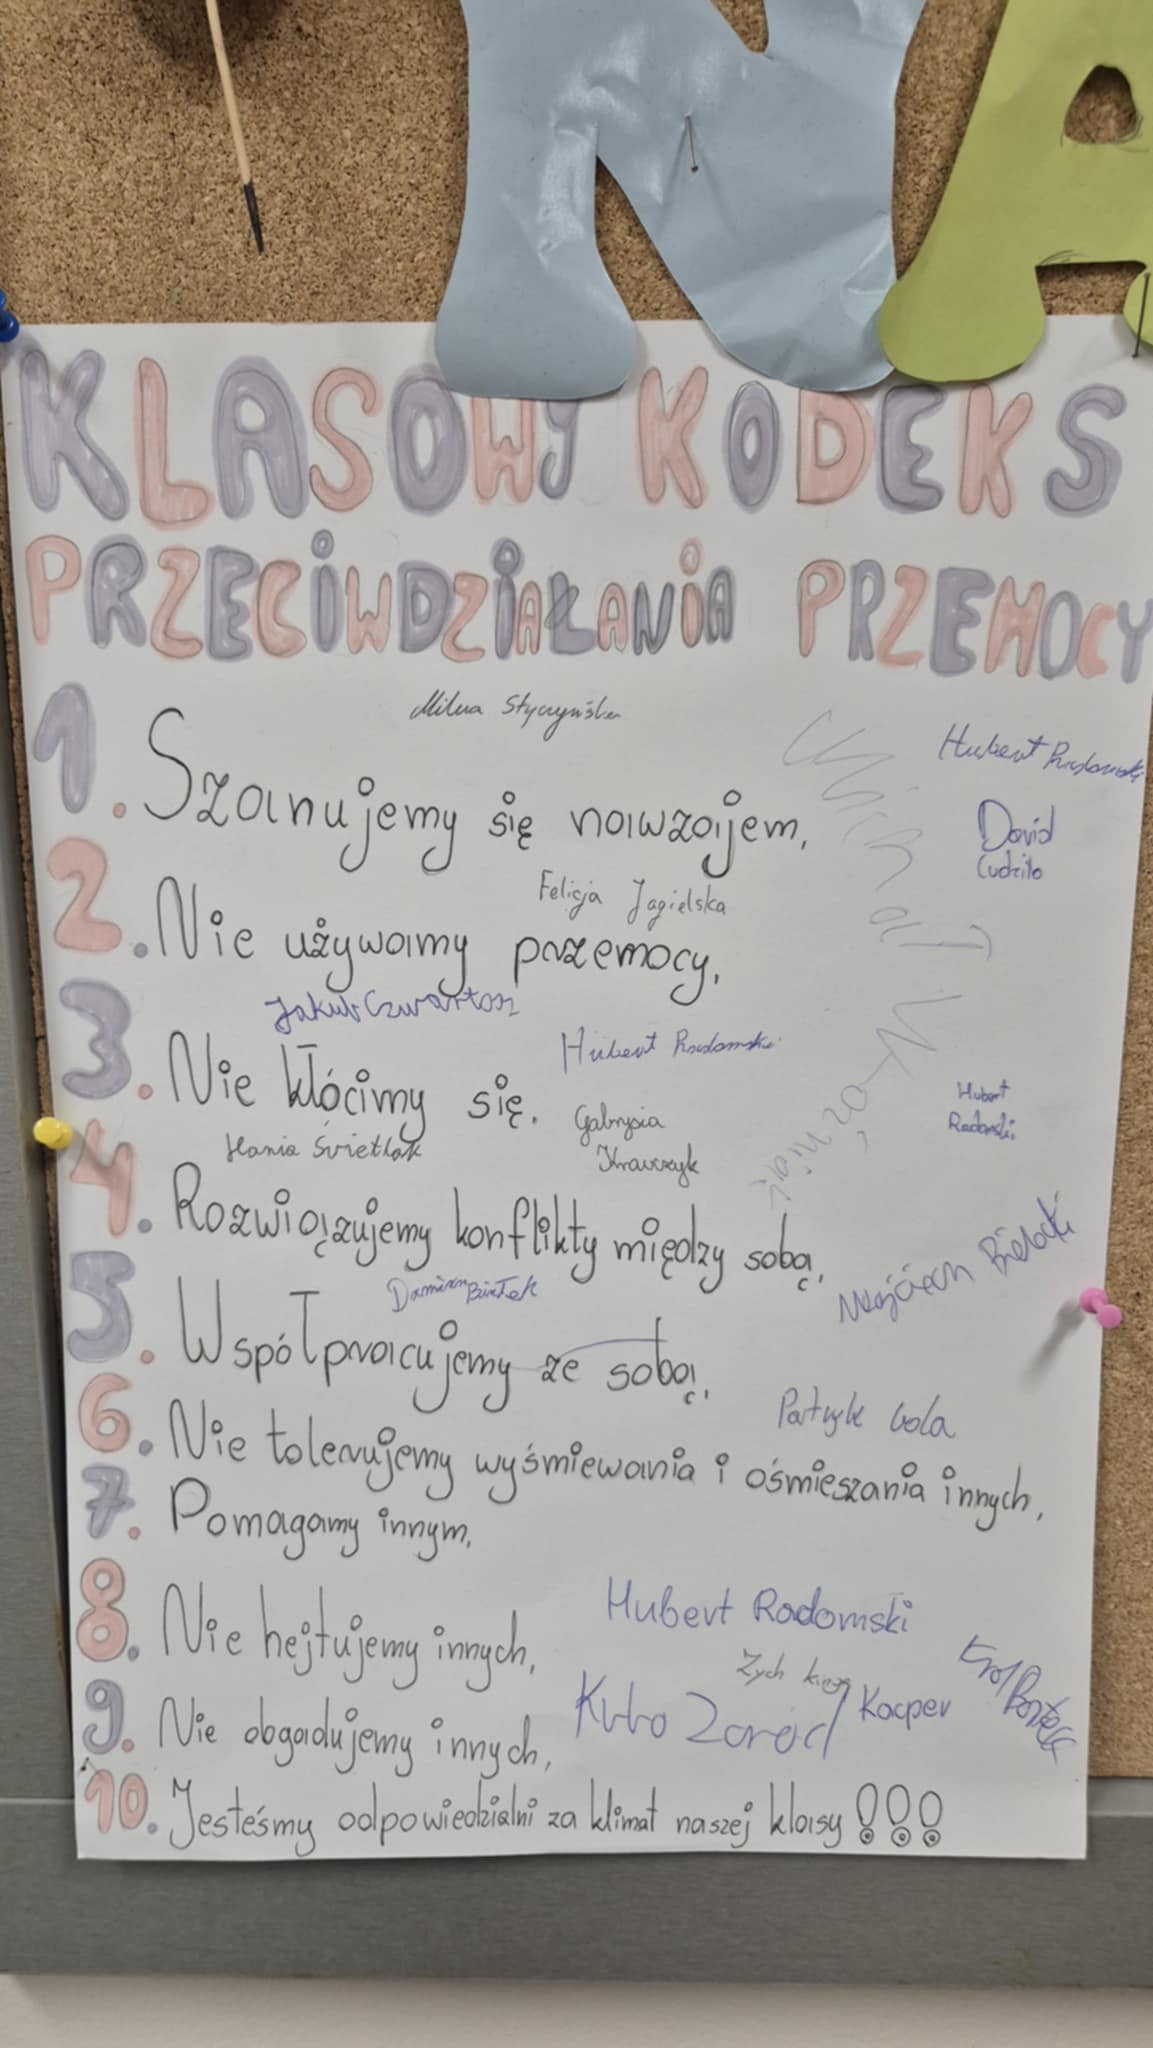 NA
KLASOWY KODEKS
PRZECIWDZIAŁANIA PRZEMOCY
Milena Styczyńska
Hubert Radomski
1. Szanujemy się nawzajem,
David
Cudziło
Felicja Jagielska
2. Nie używamy przemocy,
Jakub Czwartosz
Hubert Radomski
3. Nie kłócimy się,
Hubert
Radomski
Gabrysia
Krawczyk
Hania Świetlak
Michał
4. Rozwiązujemy konflikty między sobą,
Wojciech Bielacki
Damian Białek
5. Współpracujemy ze sobą,
Patryk
6. Nie tolerujemy wyśmiewania i ośmieszania innych,
7. Pomagamy innym,
Hubert Radomski
8. Nie hejtujemy innych,
Zych kinga
Kuba
Kacper
9. Nie obgadujemy innych,
10. Jesteśmy odpowiedzialni za klimat naszej klasy !!!